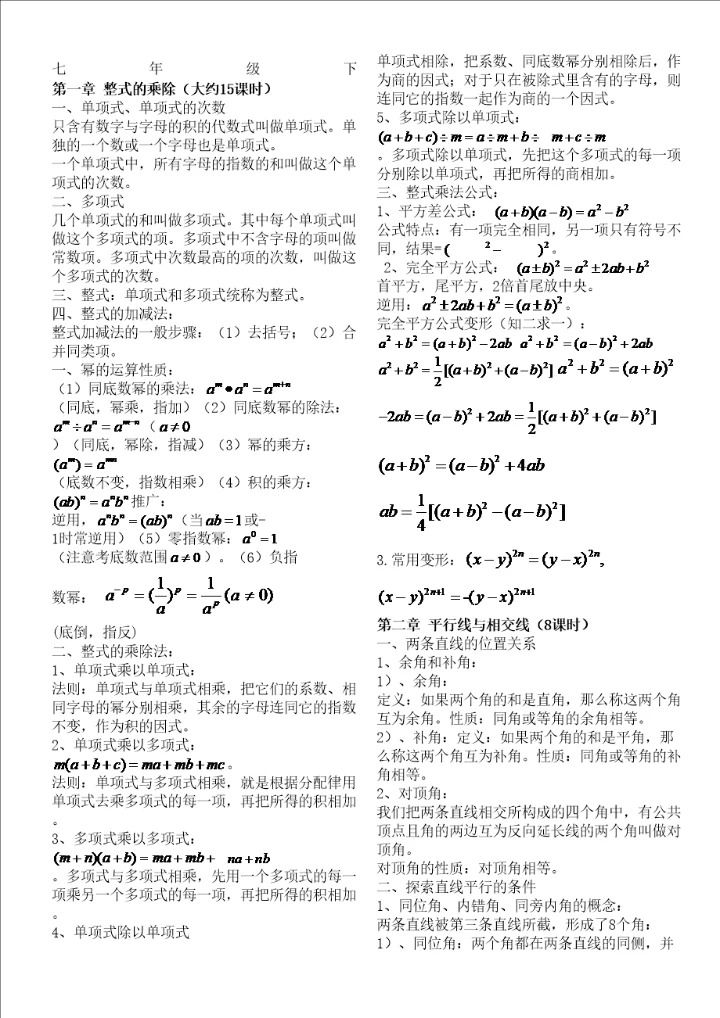 七 年 级 下
第一章 整式的乘除（大约15课时）
一、单项式、单项式的次数
只含有数字与字母的积的代数式叫做单项式。单
独的一个数或一个字母也是单项式。
一个单项式中，所有字母的指数的和叫做这个单
项式的次数。
二、多项式
几个单项式的和叫做多项式。其中每个单项式叫
做这个多项式的项。多项式中不含字母的项叫做
常数项。多项式中次数最高的项的次数，叫做这
个多项式的次数。
三、整式：单项式和多项式统称为整式。
四、整式的加减法：
整式加减法的一般步骤：（1）去括号；（2）合
并同类项。
一、幂的运算性质：
（1）同底数幂的乘法：a^m•a^n=a^{m+n}
（同底，幂乘，指加）（2）同底数幂的除法：
a^m÷a^n=a^{m-n}（a≠0
）（同底，幂除，指减）（3）幂的乘方：
(a^m)=a^{mn}
（底数不变，指数相乘）（4）积的乘方：
(ab)^n=a^n b^n推广：
逆用，a^n b^n=(ab)^n（当ab=1或-
1时常逆用）（5）零指数幂：a^0=1
（注意考底数范围a≠0）。（6）负指
数幂：a^{-p}=(1/a)^p=1/a^p(a≠0)
(底倒，指反)
二、整式的乘除法：
1、单项式乘以单项式：
法则：单项式与单项式相乘，把它们的系数、相
同字母的幂分别相乘，其余的字母连同它的指数
不变，作为积的因式。
2、单项式乘以多项式：
m(a+b+c)=ma+mb+mc。
法则：单项式与多项式相乘，就是根据分配律用
单项式去乘多项式的每一项，再把所得的积相加
。
3、多项式乘以多项式：
(m+n)(a+b)=ma+mb+ na+nb
。多项式与多项式相乘，先用一个多项式的每一
项乘另一个多项式的每一项，再把所得的积相加
。
4、单项式除以单项式
单项式相除，把系数、同底数幂分别相除后，作
为商的因式；对于只在被除式里含有的字母，则
连同它的指数一起作为商的一个因式。
5、多项式除以单项式：
(a+b+c)÷m=a÷m+b÷ m+c÷m
。多项式除以单项式，先把这个多项式的每一项
分别除以单项式，再把所得的商相加。
三、整式乘法公式：
1、平方差公式： (a+b)(a-b)=a²-b²
公式特点：有一项完全相同，另一项只有符号不
同，结果=( ²- )²。
2、完全平方公式： (a±b)²=a²±2ab+b²
首平方，尾平方，2倍首尾放中央。
逆用：a²±2ab+b²=(a±b)²。
完全平方公式变形（知二求一）：
a²+b²=(a+b)²-2ab a²+b²=(a-b)²+2ab
a²+b²=1/2[(a+b)²+(a-b)²] a²+b²=(a+b)²
-2ab=(a-b)²+2ab=1/2[(a+b)²+(a-b)²]
(a+b)²=(a-b)²+4ab
ab=1/4[(a+b)²-(a-b)²]
3.常用变形：(x-y)^{2n}=(y-x)^{2n},
(x-y)^{2n+1}=-(y-x)^{2n+1}
第二章 平行线与相交线（8课时）
一、两条直线的位置关系
1、余角和补角：
1）、余角：
定义：如果两个角的和是直角，那么称这两个角
互为余角。性质：同角或等角的余角相等。
2）、补角：定义：如果两个角的和是平角，那
么称这两个角互为补角。性质：同角或等角的补
角相等。
2、对顶角：
我们把两条直线相交所构成的四个角中，有公共
顶点且角的两边互为反向延长线的两个角叫做对
顶角。
对顶角的性质：对顶角相等。
二、探索直线平行的条件
1、同位角、内错角、同旁内角的概念：
两条直线被第三条直线所截，形成了8个角：
1）、同位角：两个角都在两条直线的同侧，并